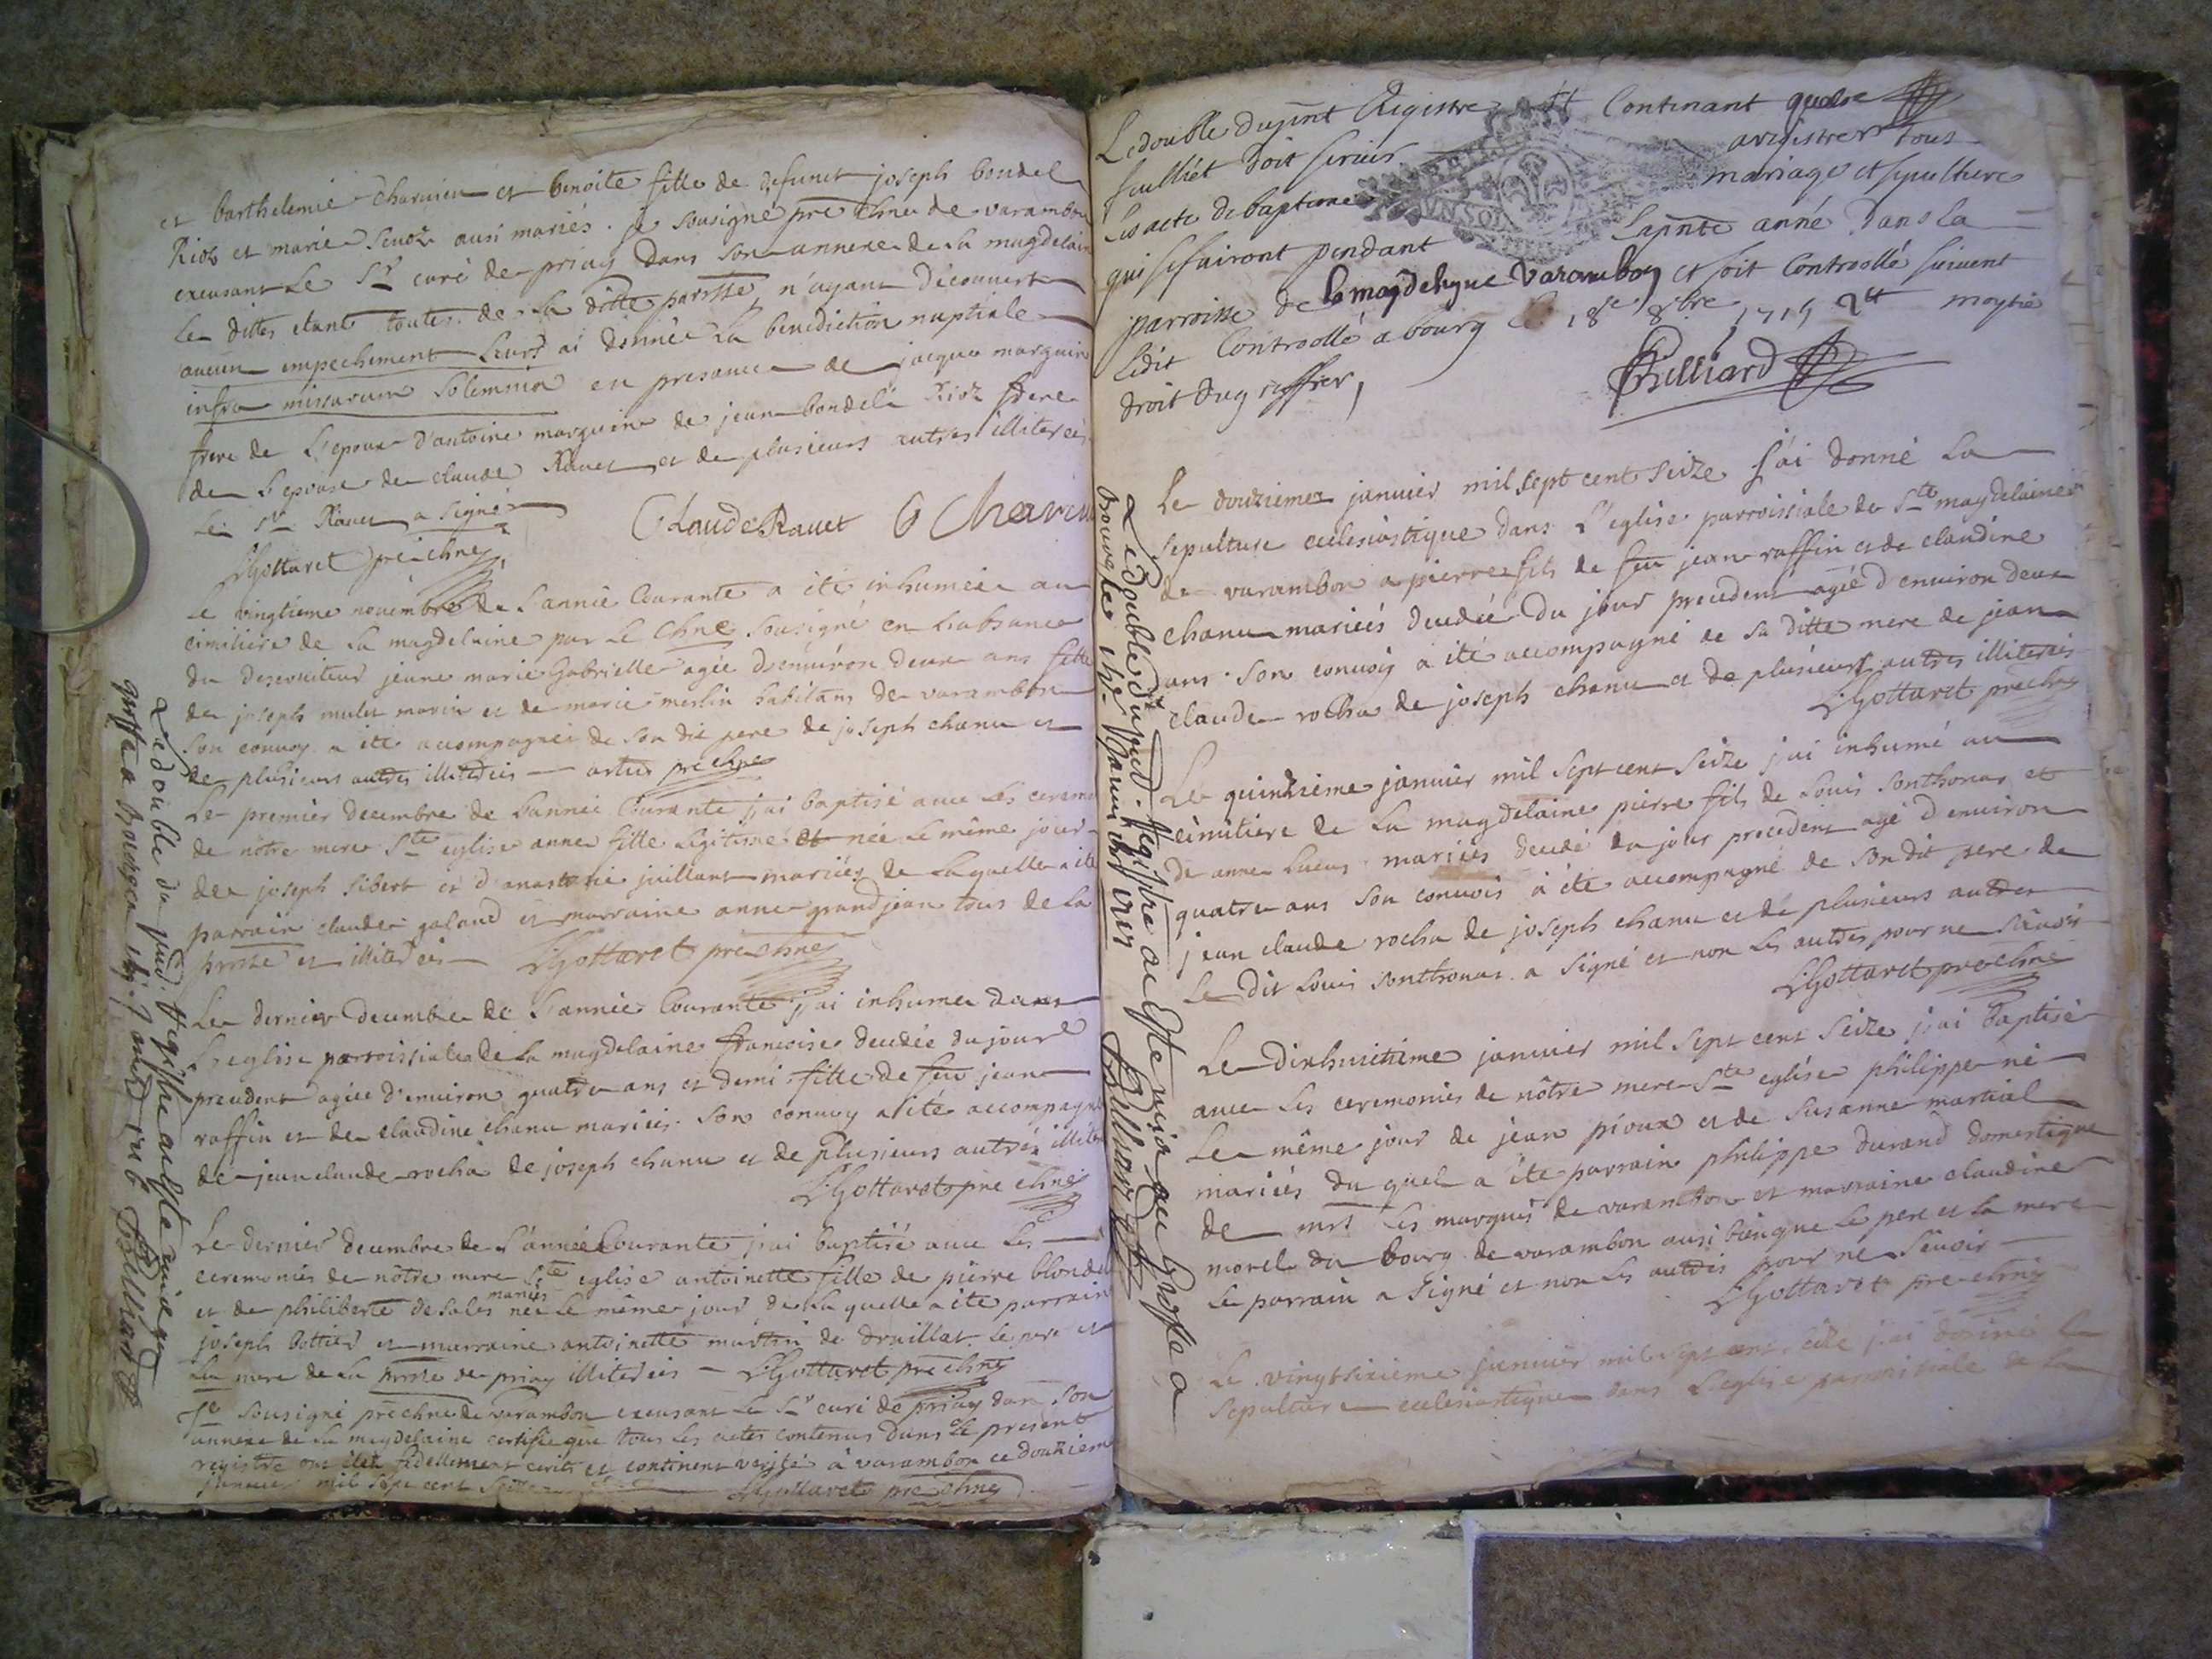 et barthelemie charvieu et benoite fille de defunct joseph bondel
Rioz et marie Sevoz ausi mariés. je sousigné pre chne de varambon
excusant Le Sr curé de priay dans son annexe de la magdelaine
les dittes etant toutes de la ditte parisse n'ayant découvert
aucun empechement Leurs ai donnée La benediction nuptiale
infra missarum solemnia en presance de jacque marguin
frere de L'epoux d'antoine marguin de jean bondel Rioz frere
de L'epouse de claude Ravet et de plusieurs autres illiterés
Le sr Ravet a signé
Claude Ravet
LGottaret pre chne
Le vingtieme novembre de L'année Courante a ité inhumée au
cimitiere de la magdelaine par Le Chne sousigné en L'absance
du deserviteur jeane marie Gabrielle agée d'environ deux ans fille
de joseph mulet marin et de marie merlin habitans de varambon
son convoy a ete accompagnée de son dit pere de joseph chanu et
de plusieurs autres illiterés artus pre chne
Le premier decembre de L'année Courante j'ai baptisé avec Les ceremo
de nôtre mere Ste eglise anne fille Legitime et née Le même jour
de joseph sibert et d'anastasie juillant mariés de Laquelle a ité
parrain claude galand et marraine anne grandjean tous de la
prosse et illiterés LGottaret pre chne
Le dernier decembre de L'année Courante j'ai inhumée dans
L'eglise parroissiale de La magdelaine francoise decedée du jour
precedent agée d'environ quatre ans et demi fille de feu jean
raffin et de claudine chanu mariés. son convoy a ité accompagné
de jean claude rocha de joseph chanu et de plusieurs autres illite
LGottaret pre chne
Le dernier decembre de L'année Courante j'ai baptisé avec Les
ceremonies de nôtre mere Ste eglise antoinette fille de pierre blondel
et de philiberte desales mariés née Le même jour de Laquelle a ité parrain
joseph Bottier et marraine antoinette martin de druillat Le pere et
La mere de La prosse de priay illiterés LGottaret pre chne
Je sousigné pre chne de varambon excusant Le Sr curé de priay dans son
annexe de La magdelaine certifie que tous Les actes contenus dans Le present
registre ont étés fidellement ecrits et continent verité à varambon ce douzieme
janvier mil sept cent seize LGottaret pre chne
Le double du pnt Registre
Le double du pnt Registre Continant quatre
feulliet doit servir a registrer tous
Les acte de bapteme mariage et sepulture
qui se fairont pendant La pnte anné dans la
parroisse de la magdeleyne Varambon et soit Controollé suivent
Ledit Controollé a bourg Le 18e 8bre 1715 moytié
droit du greffier
Le douzieme janvier mil sept cent seize j'ai donné La
sepulture eclesiastique dans L'eglise parroissiale de Ste magdelaine
de varambon a pierre fils de feu jean raffin et de claudine
chanu mariés decedée du jour precedent agé d'environ deux
ans. son convoy a ité accompagné de sa ditte mere de jean
claude rocha de joseph chanu et de plusieurs autres illiterés
LGottaret pre chne
Le quinzieme janvier mil sept cent seize j'ai inhumé au
cimitiere de La magdelaine pierre fils de Louis Sonthonas et
de anne Lucus mariés decedé du jour precedent agé d'environ
quatre ans son convois à ete accompagné de son dit pere de
jean claude rocha de joseph chanu et de plusieurs autres
Le dit Louis Sonthonas a signé et non Les autres pour ne sçavoir
LGottaret pre chne
Le dixhuitieme janvier mil sept cent seize j'ai baptisé
avec Les ceremonies de nôtre mere Ste eglise philippe né
Le même jour de jean pioux et de Susanne martial
mariés du quel a ête parrain philippe durand domestique
de mrs Les marquis de varambon et marraine claudine
morel du bourg de varambon ausi bien que Le pere et La mere
Le parrain a signé et non Les autres pour ne sçavoir
LGottaret pre chne
Le vingtsixieme janvier mil sept cent seize j'ai donné La
sepulture eclesiastique dans L'eglise parroissiale de La